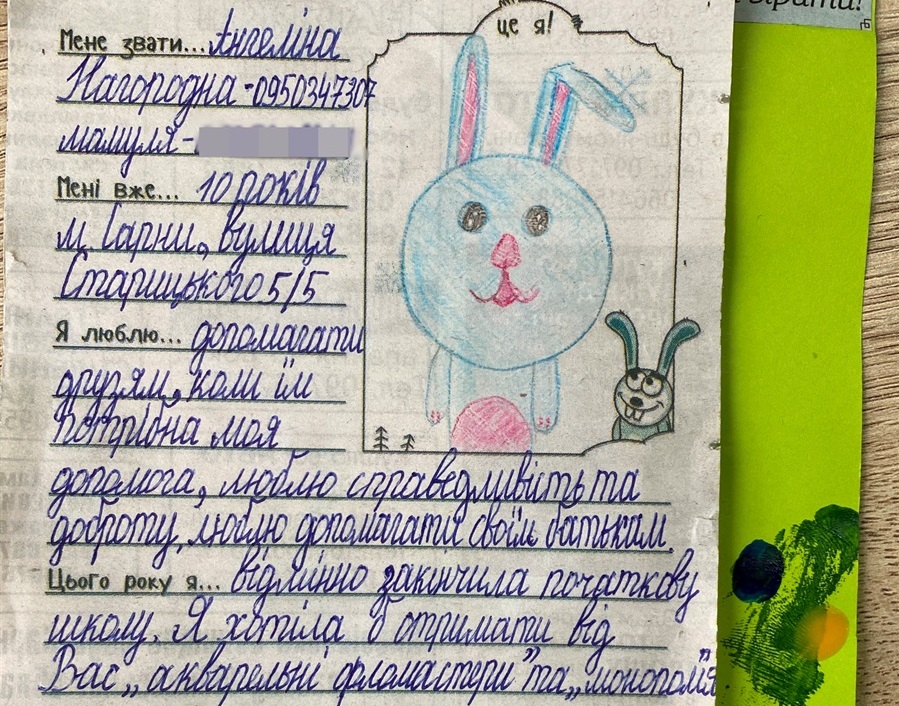 ирати!
це я!
Мене звати... Ангеліна
Нагородна - 0950347307
мамуля -
Мені вже... 10 років
м. Сарни, вулиця
Старицького 5/5
Я люблю... допомагати
друзям, коли їм
потрібна моя
допомога, люблю справедливість та
доброту, люблю допомагати своїм батькам.
Цього року я... відмінно закінчила початкову
школу. Я хотіла б отримати від
Вас „акварельні фломастери" та „монополія".